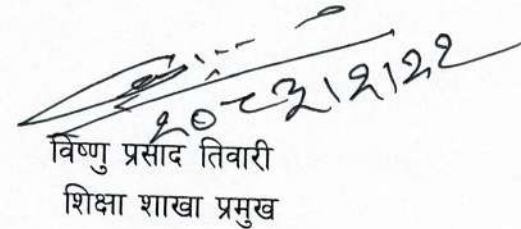 २०८३।२।२२
विष्णु प्रसाद तिवारी
शिक्षा शाखा प्रमुख